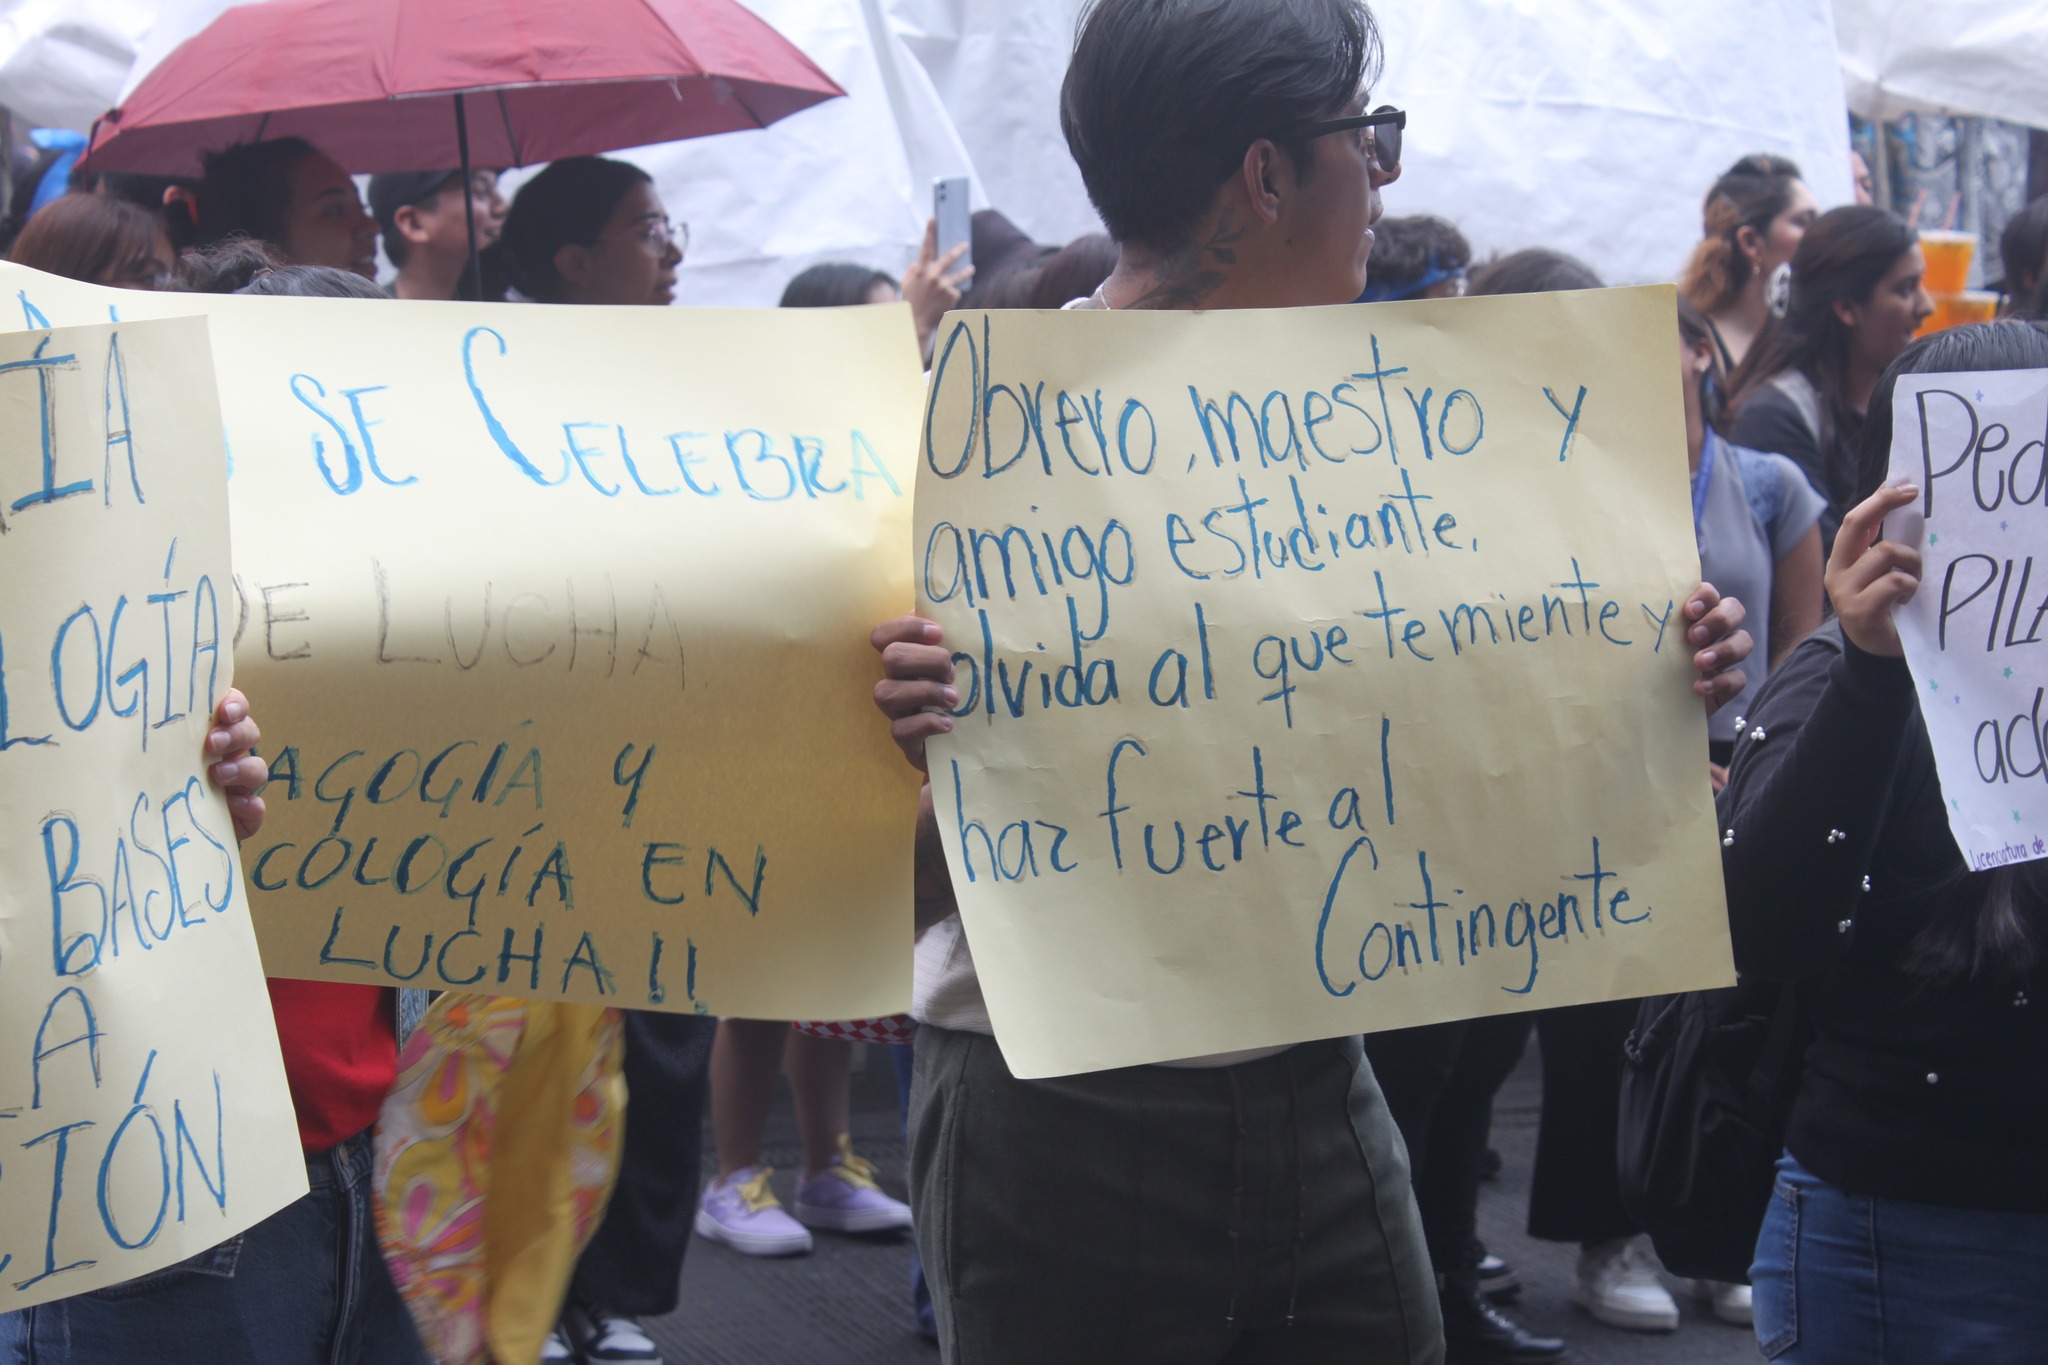 ÍA
LOGÍA
BASES
A
IÓN
SE CELEBRA
DE LUCHA
AGOGÍA Y
COLOGÍA EN
LUCHA!!
Obrero, maestro y
amigo estudiante,
olvida al que te miente y
haz fuerte al
Contingente.
Ped
PILA
Licenciatura de